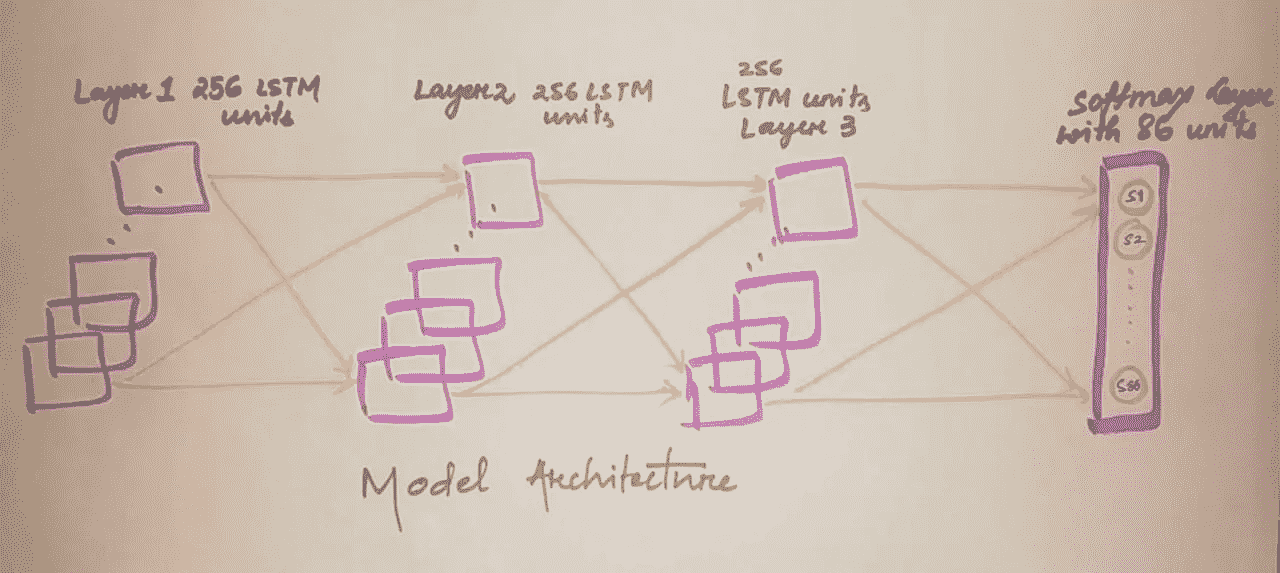 Layer 1 256 LSTM
units
Layer 2 256 LSTM
units
256
LSTM units
Layer 3
Softmax layer
with 86 units
S1
S2
S86
Model Architecture